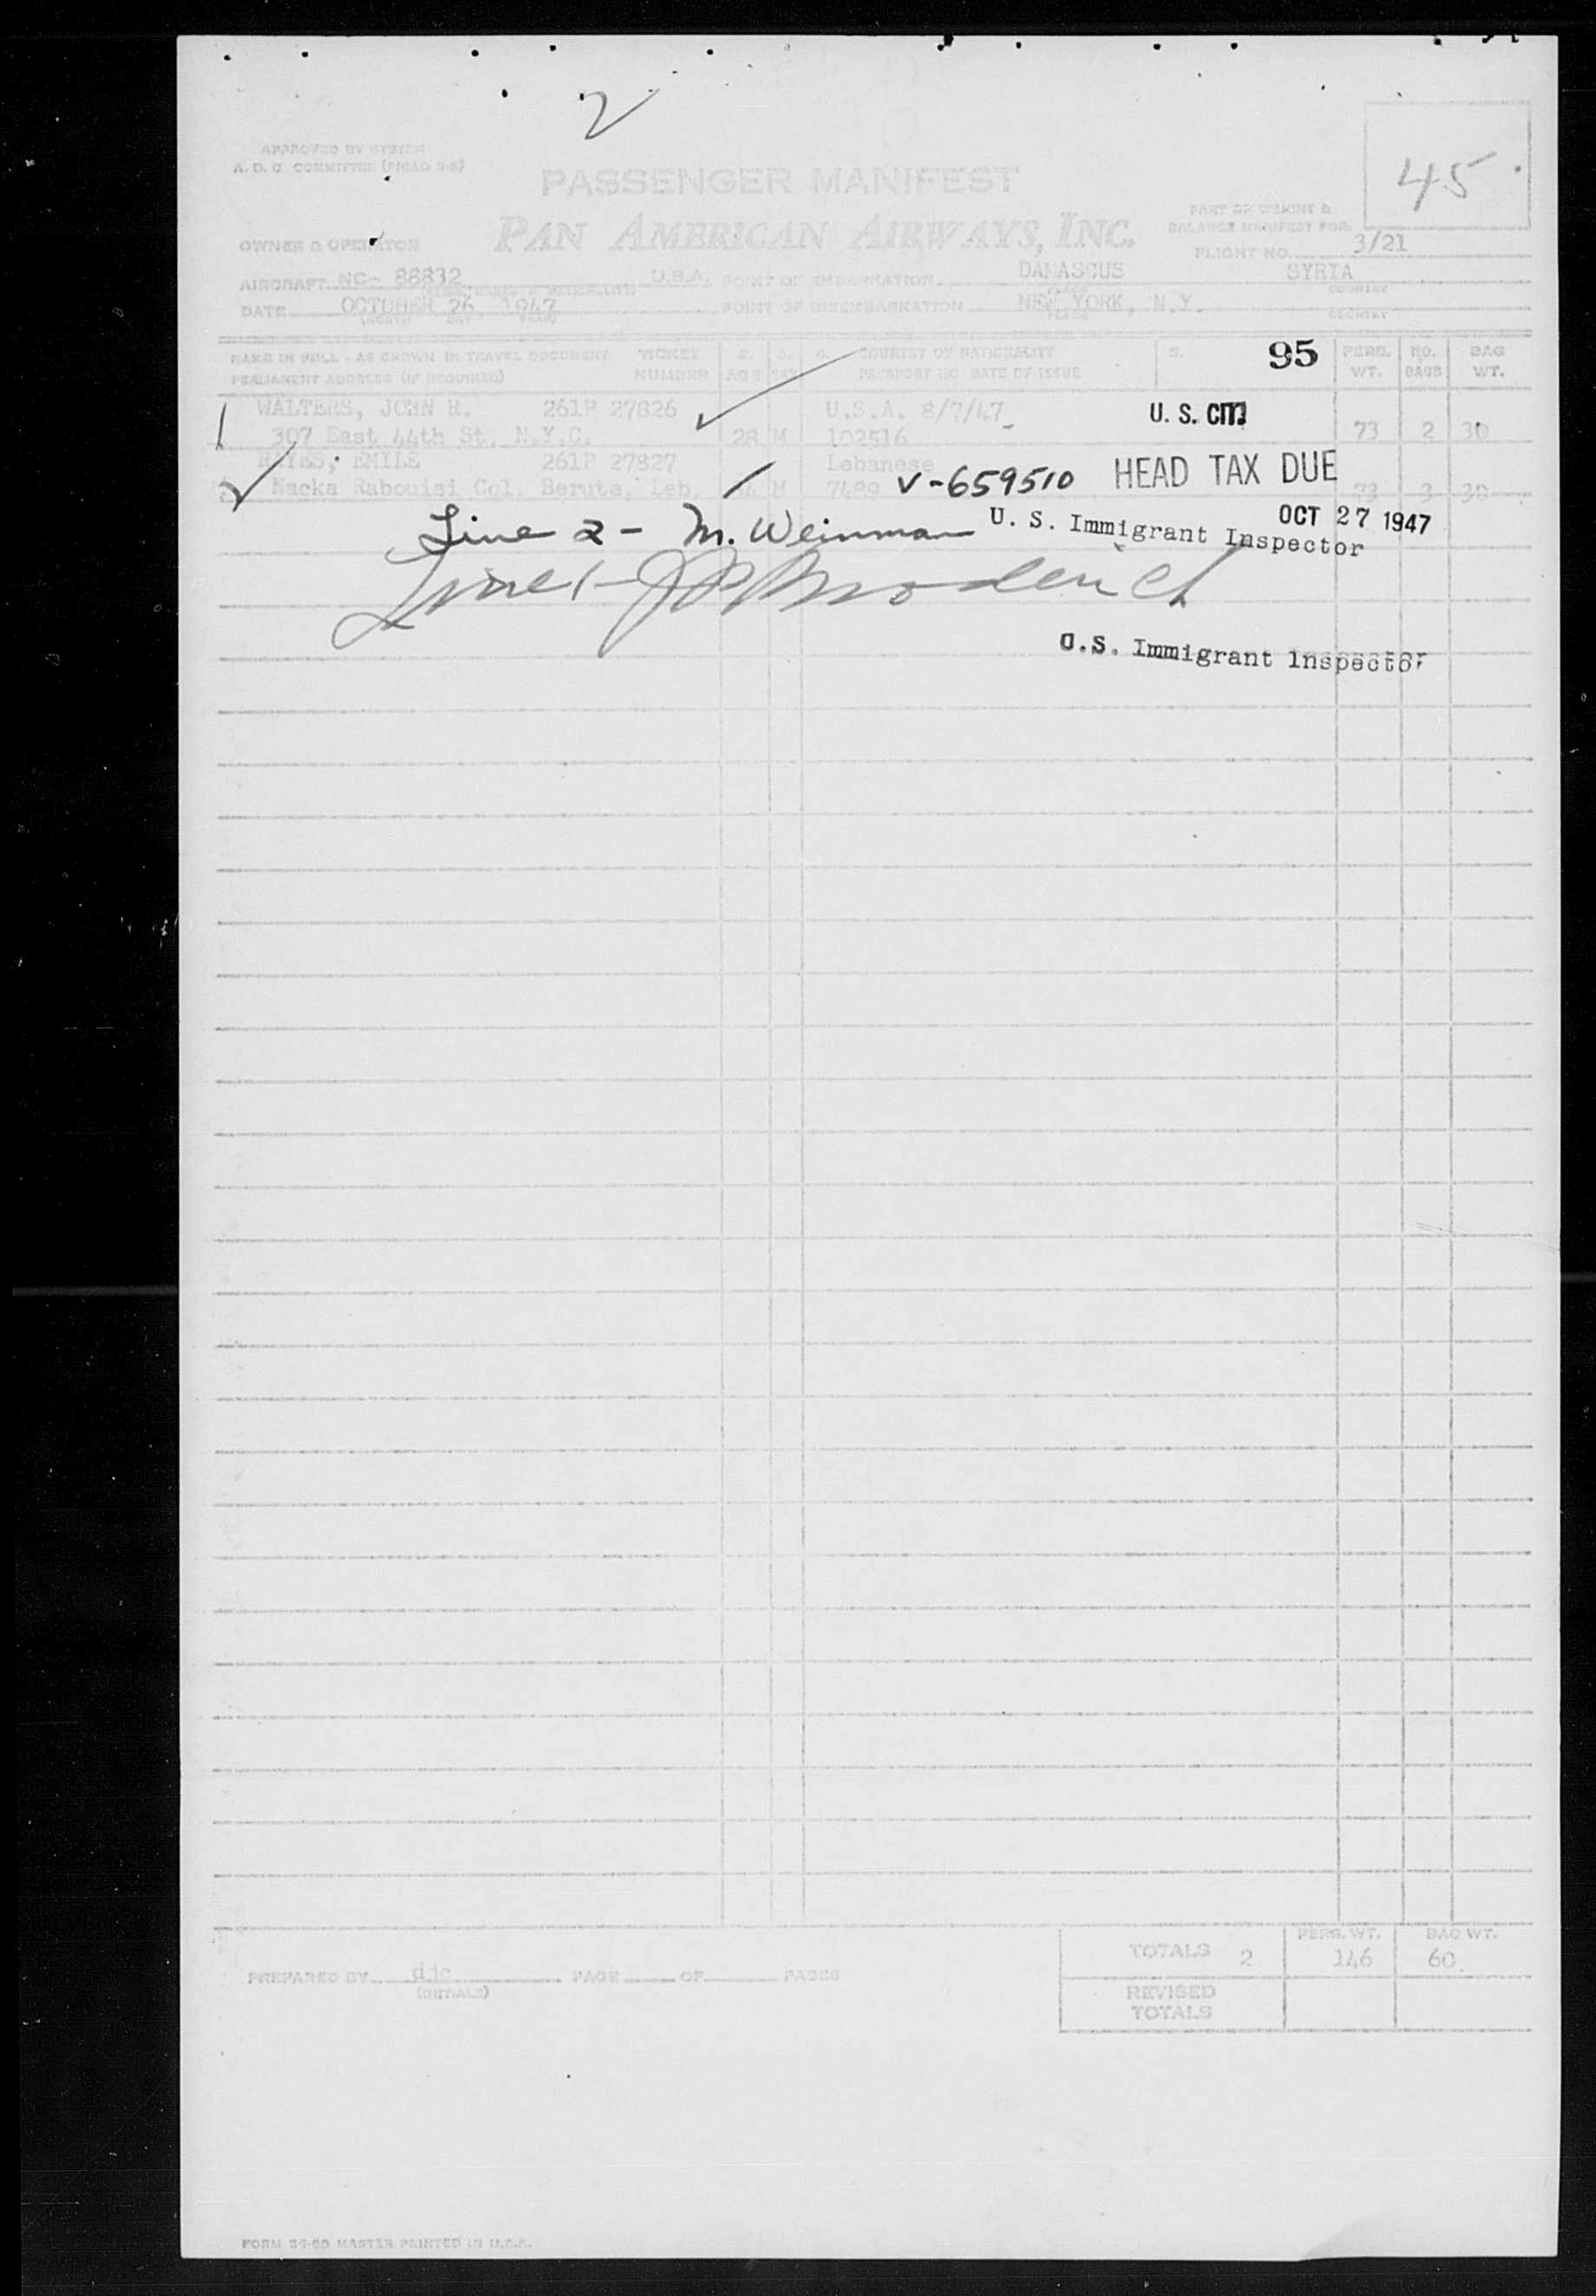 2
APPROVED BY SYSTEM
A. D. C. COMMITTEE (PICAO 9-8)
45
PASSENGER MANIFEST
PAN AMERICAN AIRWAYS, INC.
PART OF WEIGHT &
BALANCE MANIFEST FOR:
OWNER & OPERATOR
FLIGHT NO. 3/21
AIRCRAFT NC- 88832 U.S.A. POINT OF EMBARKATION DAMASCUS SYRIA
COUNTRY
DATE OCTOBER 26, 1947 POINT OF DISEMBARKATION NEW YORK, N.Y.
(MONTH DAY YEAR) PLACE COUNTRY
NAME IN FULL - AS SHOWN IN TRAVEL DOCUMENT TICKET 2. 3. 4. COUNTRY OF NATIONALITY 5. 95 PERS. NO. BAG
PERMANENT ADDRESS (IF REQUIRED) NUMBER AGE SEX PASSPORT NO DATE OF ISSUE WT. BAGS WT.
1 WALTERS, JOHN H. 261P 27826 U.S.A. 8/7/47 U. S. CIT.
307 East 44th St. N.Y.C. 28 M 102516 73 2 30
EMILE 261P 27827 Lebanese HEAD TAX DUE
Nacka Rabouisi Col. Berute, Leb. M 7489 V-659510 73 3 30
OCT 27 1947
Line 2 - M. Weinman U. S. Immigrant Inspector
Line 1 -
U.S. Immigrant Inspector
PERS. WT. BAG WT.
TOTALS 2 146 60
PREPARED BY djc PAGE OF PAGES
(INITIALS)
REVISED
TOTALS
MASTER PRINTED IN U.S.A.